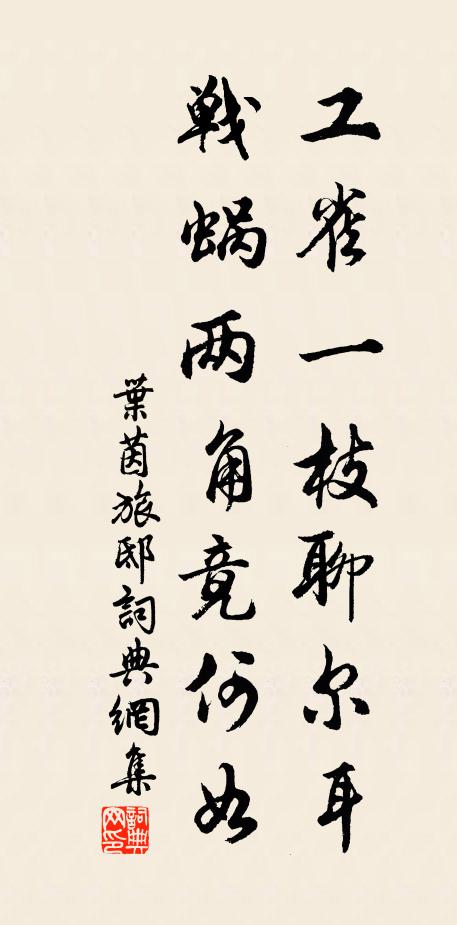 工雀一枝聊尔耳
戦蜗两角竟何如
葉茵旅邸詞典網集
詞典网印